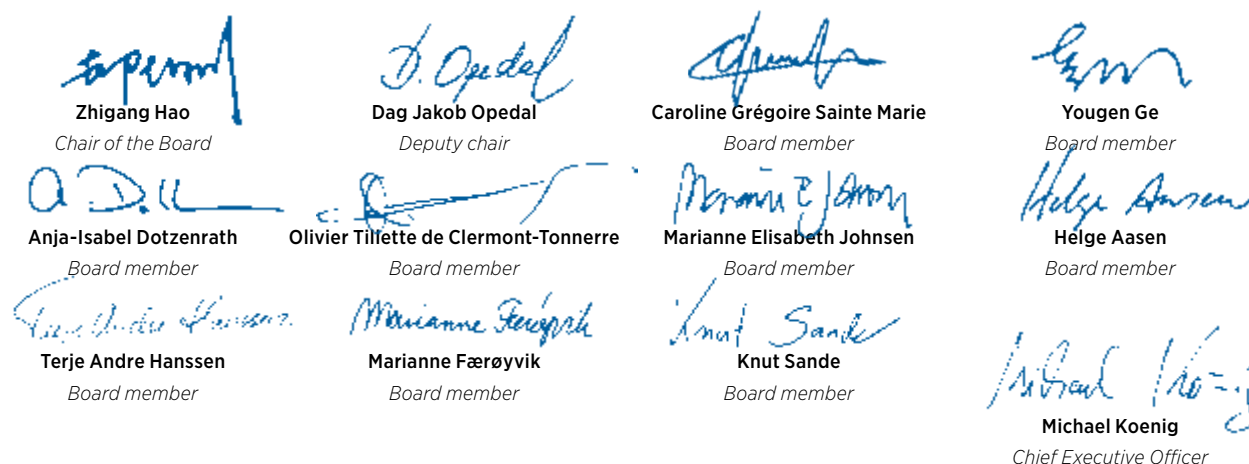 Zhigang Hao
Chair of the Board
D. Opedal
Dag Jakob Opedal
Deputy chair
Caroline Grégoire Sainte Marie
Board member
Yougen Ge
Board member
Anja-Isabel Dotzenrath
Board member
Olivier Tillette de Clermont-Tonnerre
Board member
Marianne E Johnsen
Marianne Elisabeth Johnsen
Board member
Helge Aasen
Helge Aasen
Board member
Terje Andre Hanssen
Terje Andre Hanssen
Board member
Marianne Færøyvik
Marianne Færøyvik
Board member
Knut Sande
Knut Sande
Board member
Michael Koenig
Chief Executive Officer